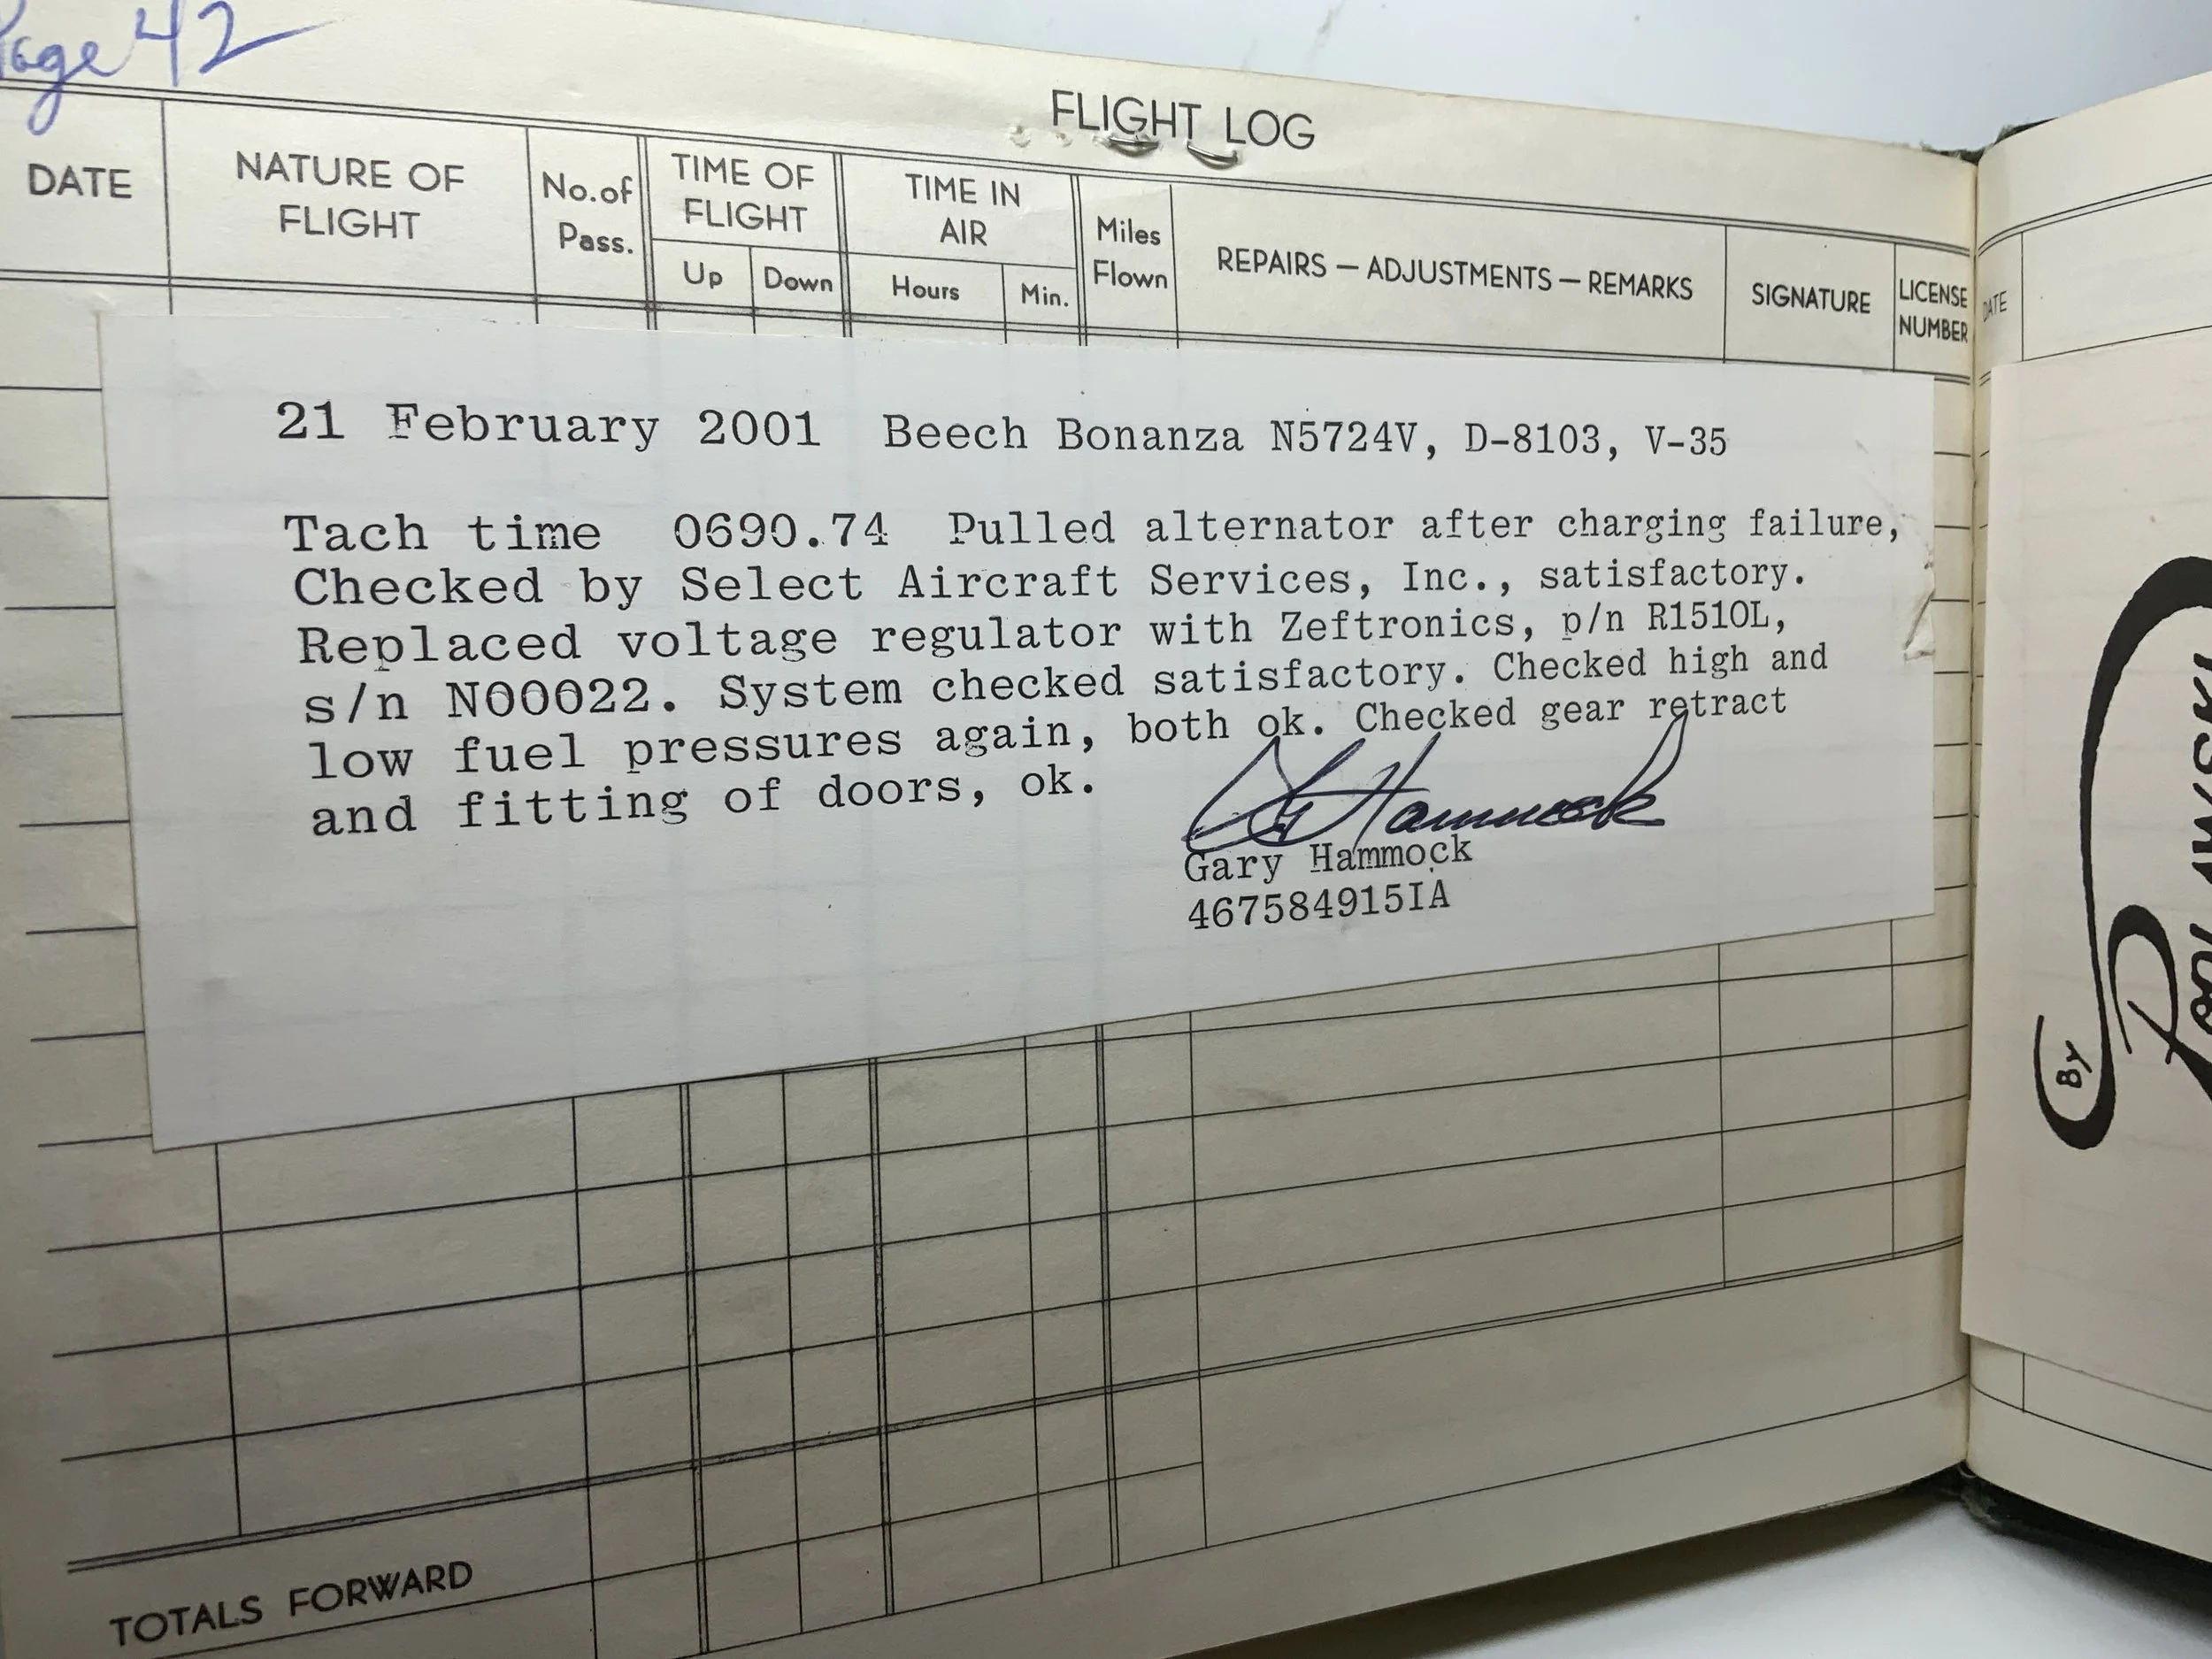 Page 42
FLIGHT LOG
DATE
NATURE OF
FLIGHT
No.of
Pass.
TIME OF
FLIGHT
Up Down
TIME IN
AIR
Hours Min.
Miles
Flown
REPAIRS — ADJUSTMENTS — REMARKS
SIGNATURE
LICENSE
NUMBER
DATE
21 February 2001 Beech Bonanza N5724V, D-8103, V-35
Tach time 0690.74 Pulled alternator after charging failure,
Checked by Select Aircraft Services, Inc., satisfactory.
Replaced voltage regulator with Zeftronics, p/n R1510L,
s/n N00022. System checked satisfactory. Checked high and
low fuel pressures again, both ok. Checked gear retract
and fitting of doors, ok.
G Hammock
Gary Hammock
467584915IA
TOTALS FORWARD
By